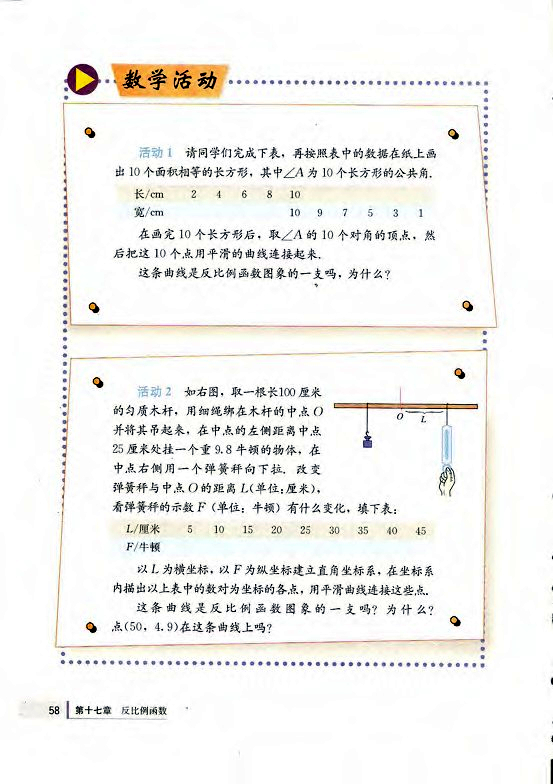 数学活动
活动 1 请同学们完成下表，再按照表中的数据在纸上画
出 10 个面积相等的长方形，其中∠A 为 10 个长方形的公共角．
长/cm 2 4 6 8 10
宽/cm 10 9 7 5 3 1
在画完 10 个长方形后，取∠A 的 10 个对角的顶点，然
后把这 10 个点用平滑的曲线连接起来．
这条曲线是反比例函数图象的一支吗，为什么？
活动 2 如右图，取一根长100 厘米
的匀质木杆，用细绳绑在木杆的中点 O
并将其吊起来，在中点的左侧距离中点
25 厘米处挂一个重 9.8 牛顿的物体，在
中点右侧用一个弹簧秤向下拉．改变
弹簧秤与中点 O 的距离 L(单位:厘米)，
看弹簧秤的示数 F（单位：牛顿）有什么变化，填下表：
O L
L/厘米 5 10 15 20 25 30 35 40 45
F/牛顿
以 L 为横坐标，以 F 为纵坐标建立直角坐标系，在坐标系
内描出以上表中的数对为坐标的各点，用平滑曲线连接这些点．
这条曲线是反比例函数图象的一支吗？为什么？
点(50，4.9)在这条曲线上吗？
58 第十七章 反比例函数